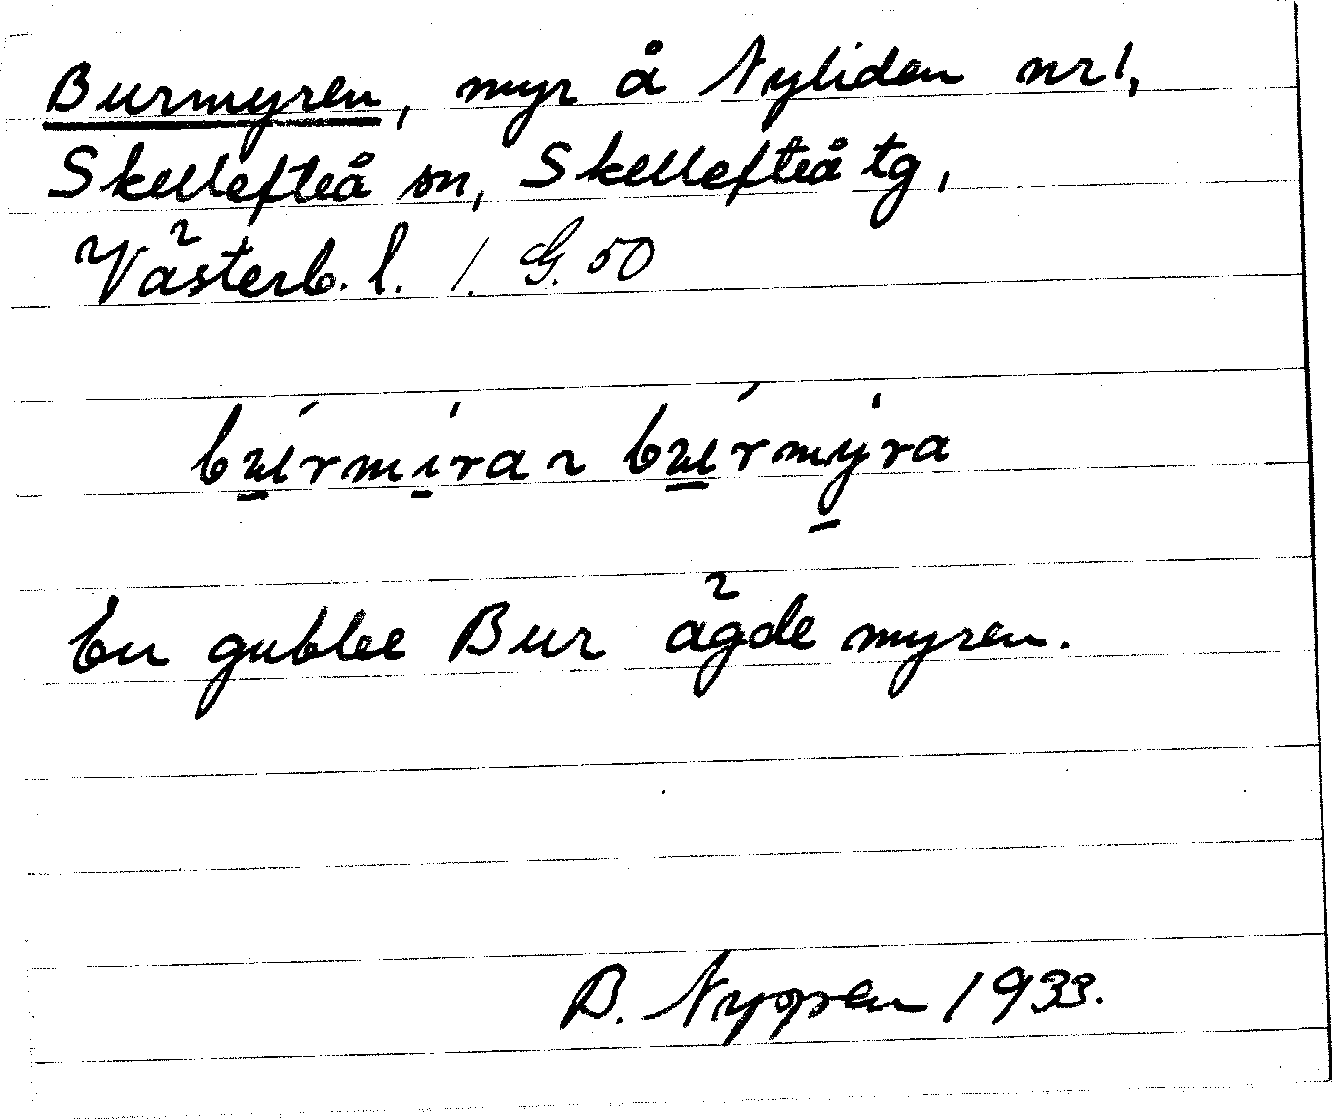 Burmyren, myr å Nyliden nr 1,
Skellefteå sn, Skellefteå tg,
Västerb. l. 1. G. 50
bu̲rmi̲ra ~ bu̲rmy̲ra
En gubbe Bur ägde myren.
B. Nygren 1933.